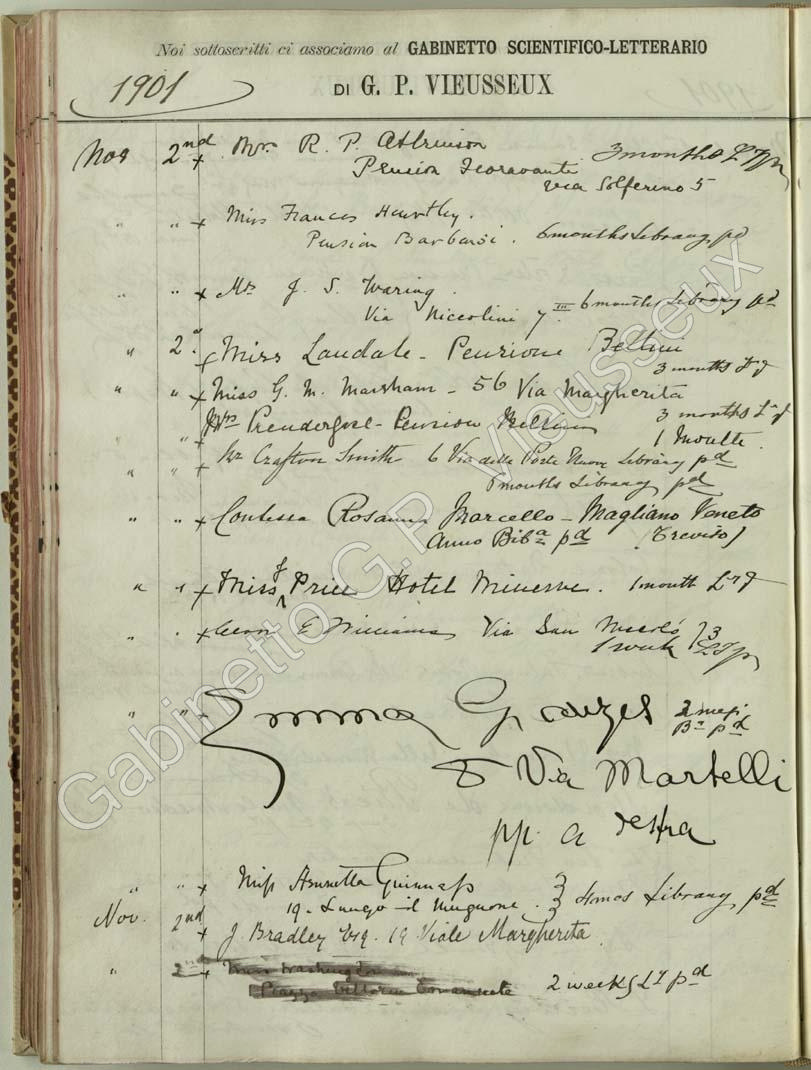 Noi sottoscritti ci associamo al GABINETTO SCIENTIFICO-LETTERARIO
1901 DI G. P. VIEUSSEUX
Nov 2nd x Mr. R. P. Atkinson 3 months
Pension Fioravanti
via Solferino 5
" " x Miss Frances
Pension Barbensi. 6 months Library pd
" " x Mrs J. S. Waring.
Via Niccolini 7 III 6 months Library pd
" 2 " x Miss Landale - Pensione Bellini
3 months
" " x Miss G. M. Marsham - 56 Via Margherita
3 months
" x Mrs Prendergast - Pension Bellini
1 Month.
" " x Crafton Smith 6 Via delle Porte Nuove Library pd
6 months Library pd
" " x Contessa Rosanna Marcello - Magliano Veneto
Anno Bib.a pd (Treviso)
" " x Miss J Price Hotel Minerva. 1 month
" " x E Williams Via San 3
1 week
" " Emma 2 mesi
B.a pd
8 Via Martelli
pp. a destra
" " x Miss Annetta Guinness
19. Lungo il Mugnone. 3 4 mos Library pd
Nov. 2nd x J. Bradley Esq. 19 Viale Margherita.
" 2nd x Miss Washington
Piazza Vittorio Emanuele 2 weeks pd
Gabinetto G.P. Vieusseux